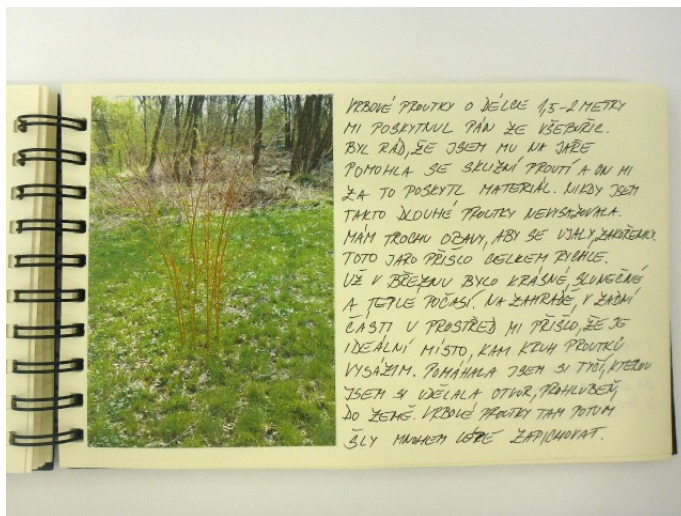 VRBOVÉ PROUTKY O DÉLCE 1,5-2 METRY
MI POSKYTNUL PÁN ZE VŠEBOŘIC.
BYL RÁD, ŽE JSEM MU NA JAŘE
POMOHLA SE SKLIZNÍ PROUTÍ A ON MI
ZA TO POSKYTL MATERIÁL. NIKDY JSEM
TAKTO DLOUHÉ PROUTKY NEVYSAZOVALA.
MÁM TROCHU OBAVY, ABY SE UJALY, ZAKOŘENILY.
TOTO JARO PŘIŠLO CELKEM RYCHLE.
UŽ V BŘEZNU BYLO KRÁSNÉ, SLUNEČNÉ
A TEPLÉ POČASÍ. NA ZAHRADĚ, V ZADNÍ
ČÁSTI U PROSTŘED MI PŘIŠLO, ŽE JE
IDEÁLNÍ MÍSTO, KAM KRUH PROUTKŮ
VYSÁZÍM. POMÁHALA JSEM SI TYČÍ, KTEROU
JSEM SI UDĚLALA OTVOR, PROHLUBEŇ,
DO ZEMĚ. VRBOVÉ PROUTKY TAM POTOM
ŠLY MNOHEM LÉPE ZAPICHOVAT.